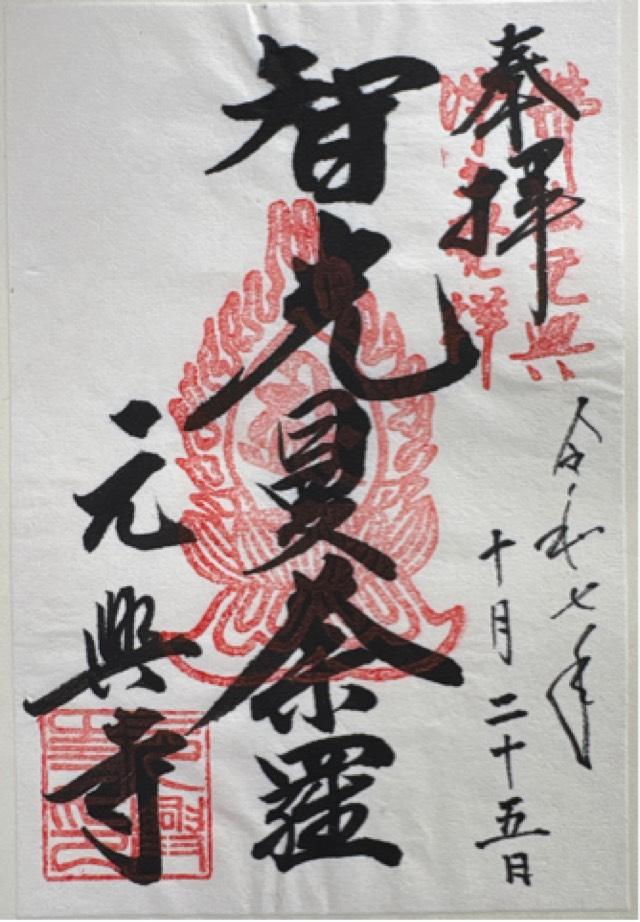 奉拝
令和七年
十月二十五日
智光曼荼羅
元興寺